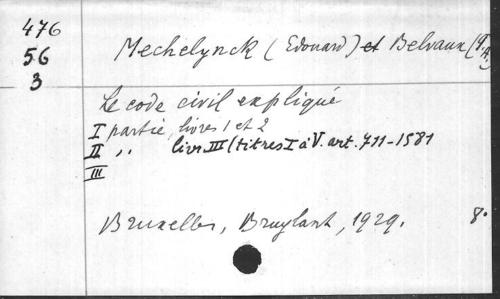 476
56
3
Mechelynck (Edouard) et Belvaux (
Le code civil expliqué
I partie, livres 1 et 2
II ,, livr. III (titres I à V. art. 711-1581
III
Bruxelles, Bruylant, 1929. 8°